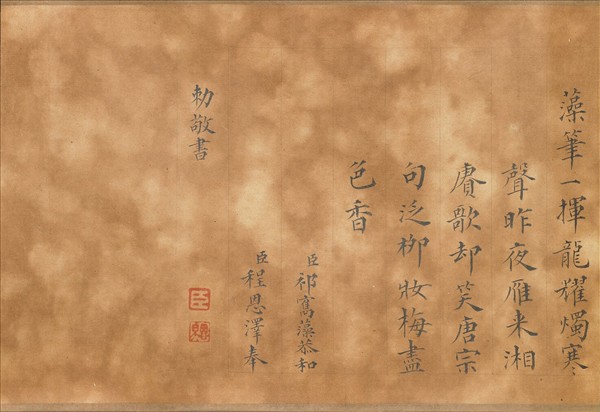 藻筆一揮龍耀燭寒
聲昨夜雁来湘
賡歌却笑唐宗
句泛柳妝梅盡
色香
臣祁寯藻恭和
臣程恩澤奉
勅敬書
臣